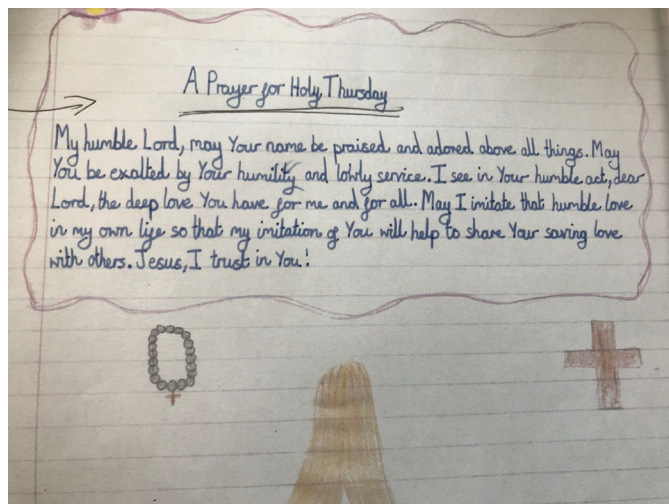 A Prayer for Holy Thursday
My humble Lord, may Your name be praised and adored above all things. May
You be exalted by Your humility and lowly service. I see in Your humble act, dear
Lord, the deep love You have for me and for all. May I imitate that humble love
in my own life so that my imitation of You will help to share Your saving love
with others. Jesus, I trust in You!